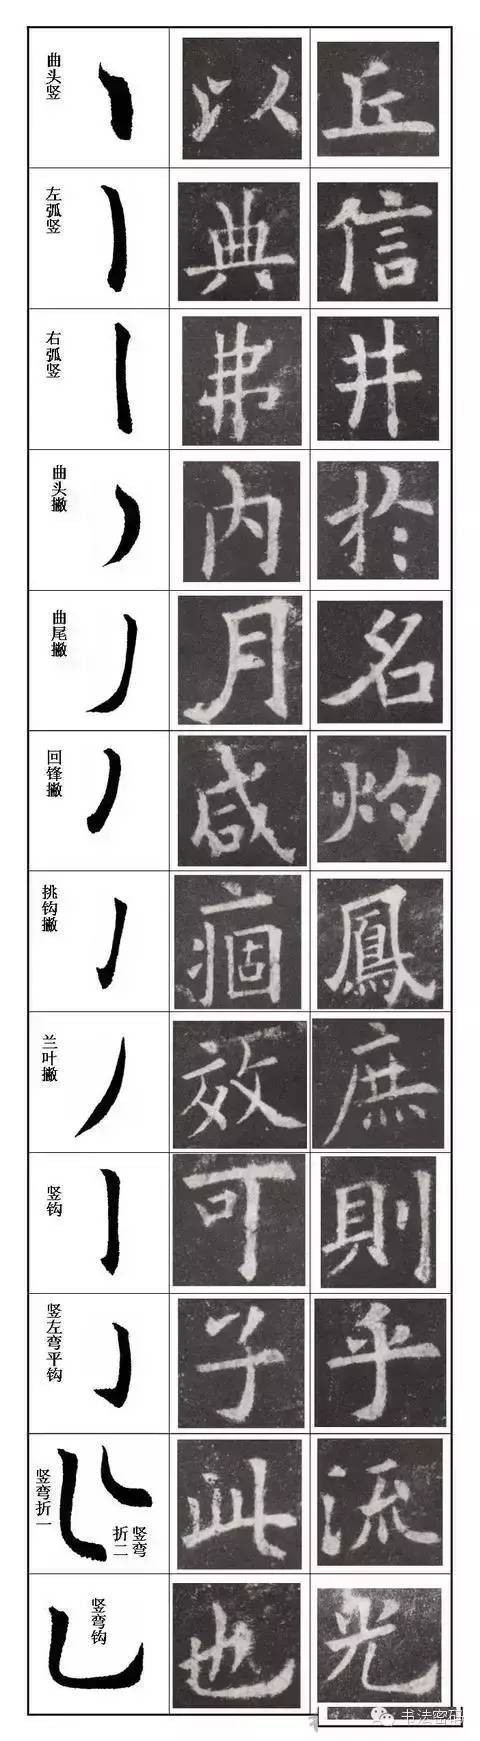 曲头竖
以 丘
左弧竖
典 信
右弧竖
弗 井
曲头撇
内 於
曲尾撇
月 名
回锋撇
咸 灼
挑钩撇
痼 鳳
兰叶撇
效 庶
竖钩
可 則
竖左弯平钩
子 乎
竖弯折一
竖弯折二
此 流
竖弯钩
也 光
书法密码